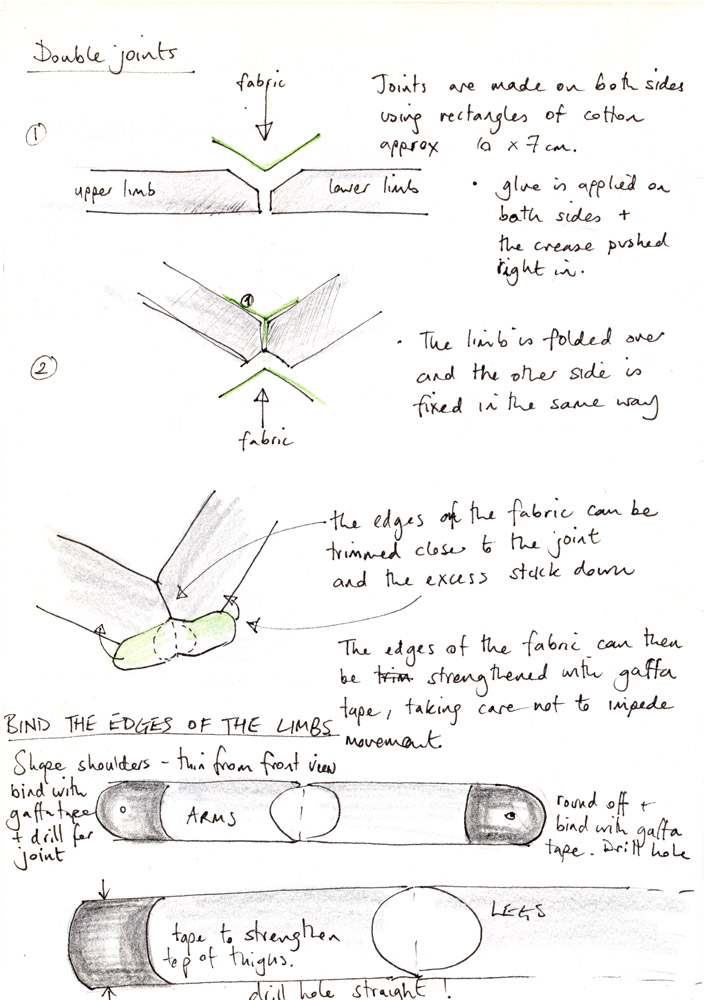 Double joints
fabric
①
Joints are made on both sides
using rectangles of cotton
approx 10 x 7 cm.
upper limb
lower limb
• glue is applied on
both sides +
the crease pushed
right in.
①
②
• The limb is folded over
and the other side is
fixed in the same way
fabric
the edges of the fabric can be
trimmed close to the joint
and the excess stuck down
The edges of the fabric can then
be trim strengthened with gaffa
tape, taking care not to impede
movement.
BIND THE EDGES OF THE LIMBS
Shape shoulders - thin from front view
bind with
gaffa tape
+ drill for
joint
ARMS
round off +
bind with gaffa
tape. Drill hole
LEGS
tape to strengthen
top of thighs.
drill hole straight !